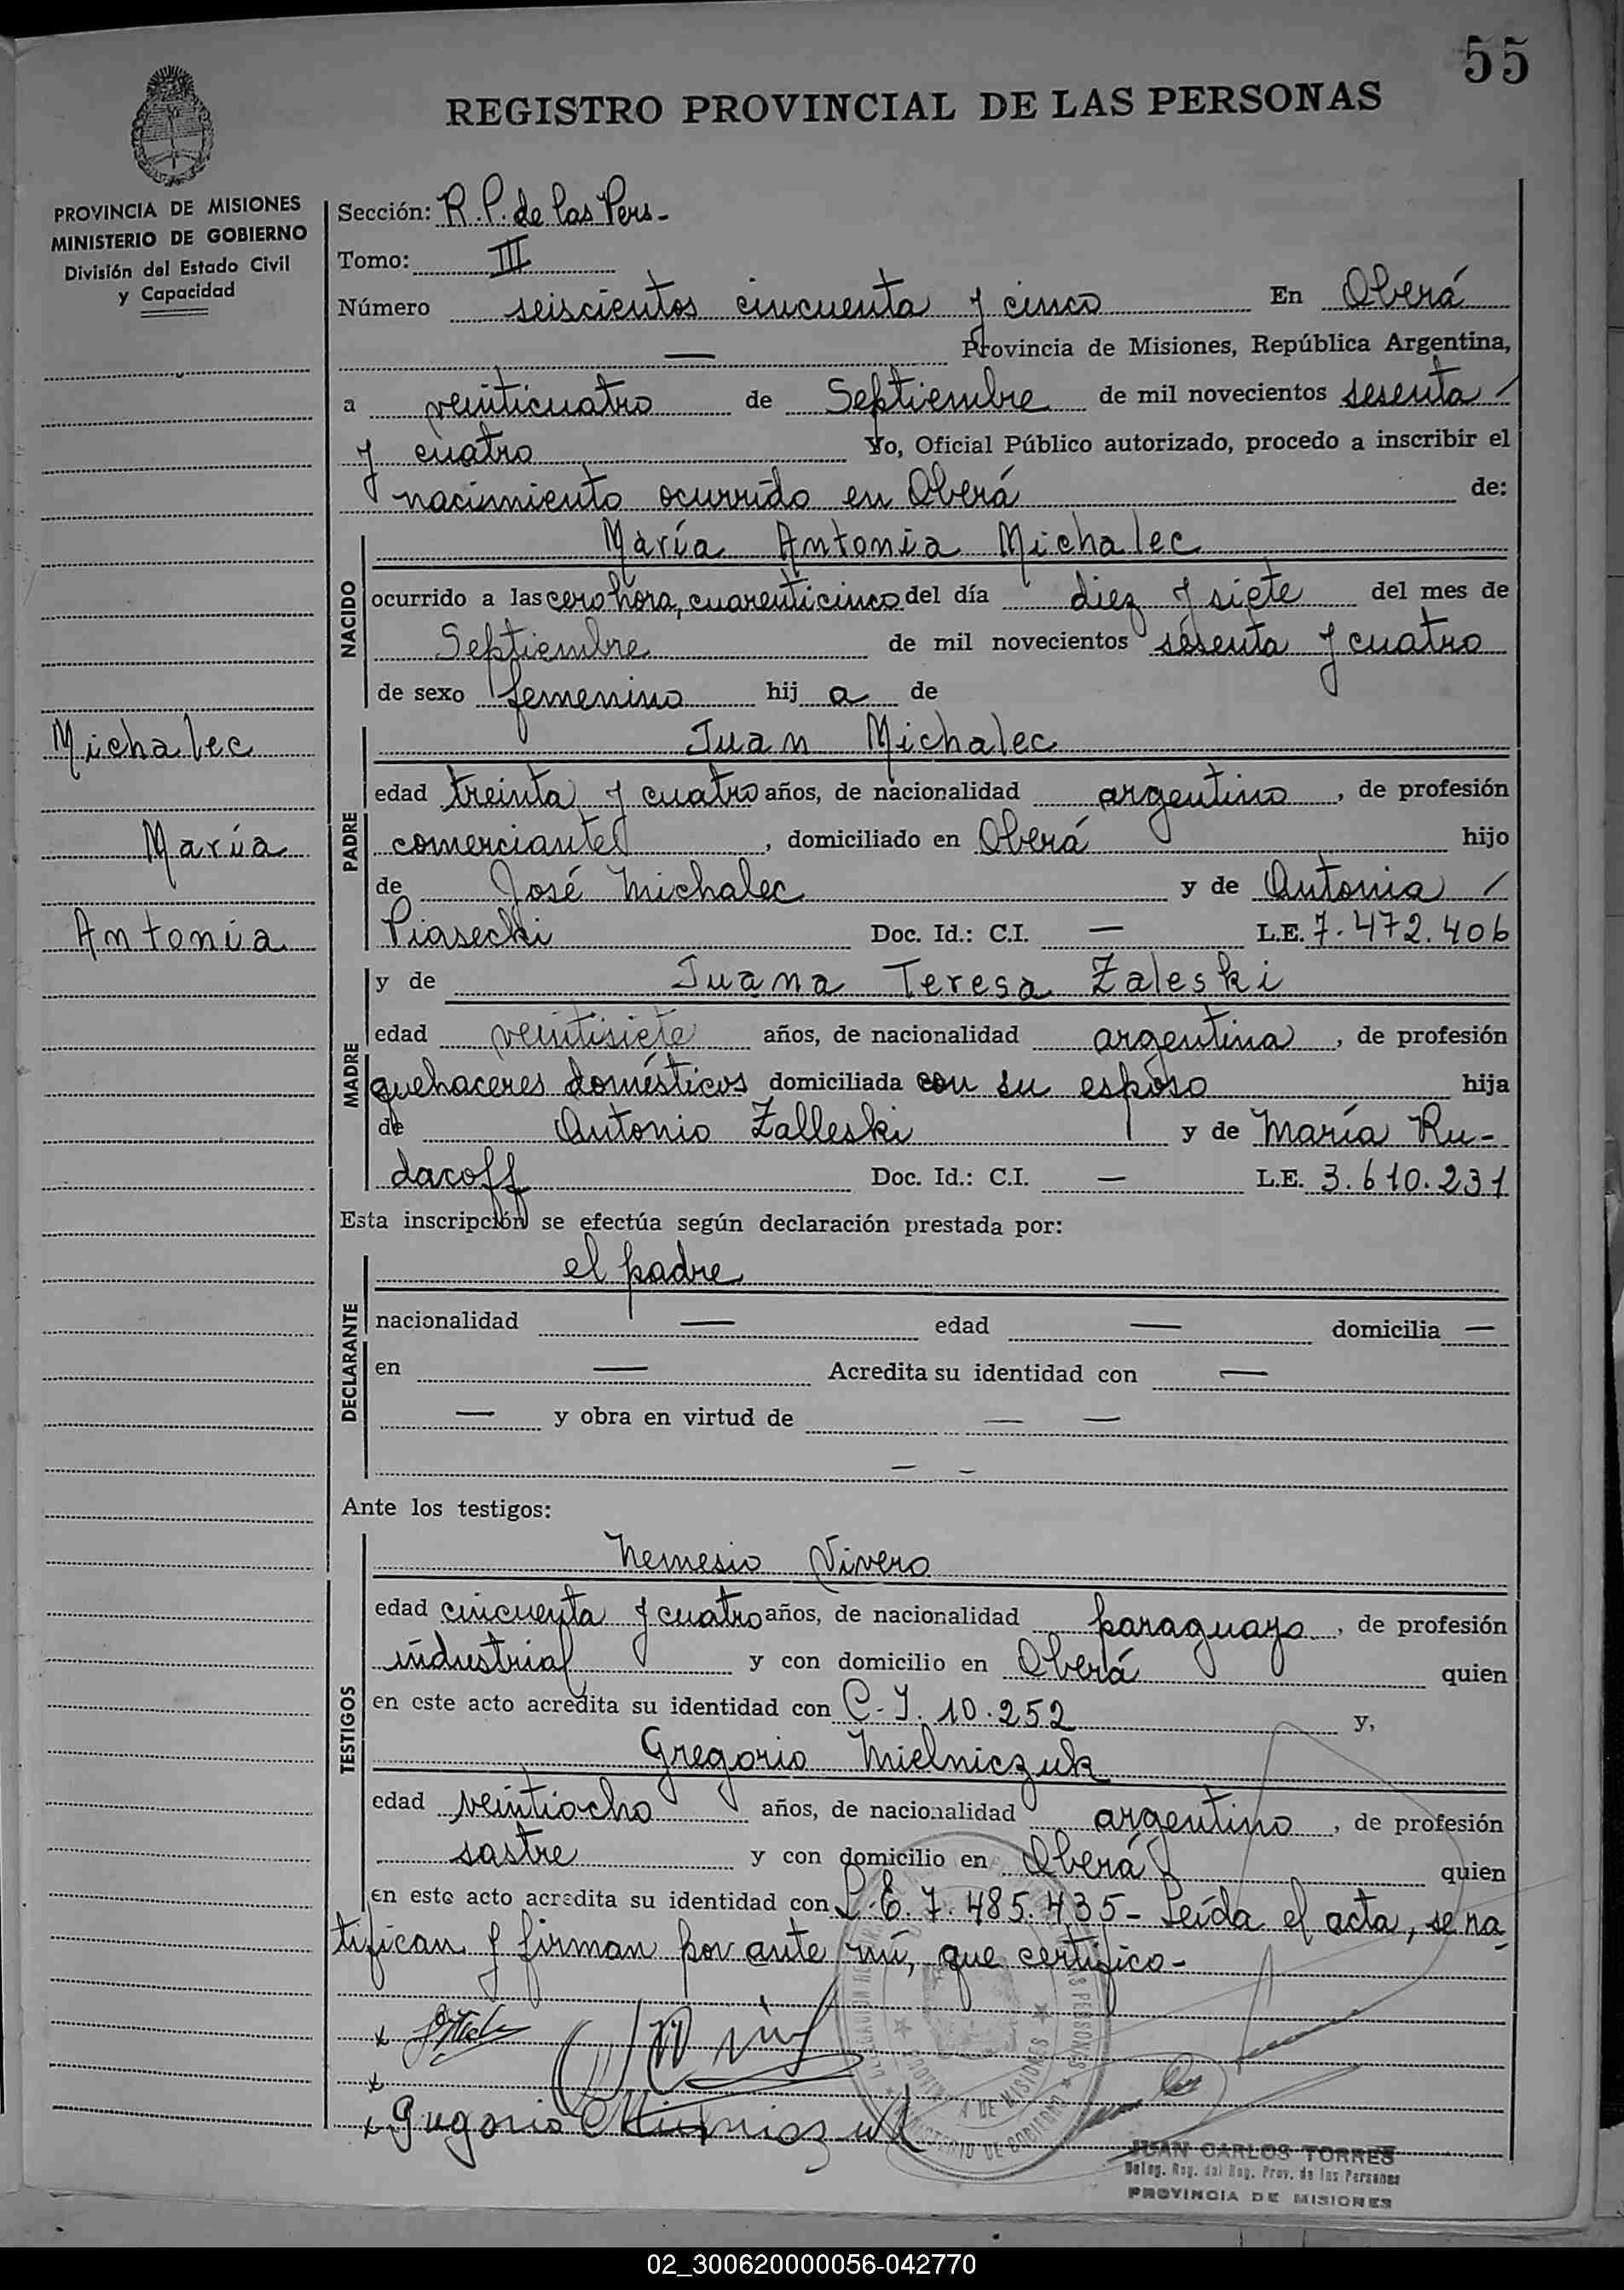 55
REGISTRO PROVINCIAL DE LAS PERSONAS
PROVINCIA DE MISIONES
MINISTERIO DE GOBIERNO
División del Estado Civil
y Capacidad
Sección: R.P. de las Pers-
Tomo: III
Número seiscientos cincuenta y cinco En Oberá
— Provincia de Misiones, República Argentina,
a veinticuatro de Septiembre de mil novecientos sesenta /
y cuatro Yo, Oficial Público autorizado, procedo a inscribir el
nacimiento ocurrido en Oberá de:
NACIDO
María Antonia Michalec
ocurrido a las cero hora, cuarenticinco del día diez y siete del mes de
Septiembre de mil novecientos sesenta y cuatro
de sexo femenino hij a de
Michalec
María
Antonia
PADRE
Juan Michalec
edad treinta y cuatro años, de nacionalidad argentino, de profesión
comerciante, domiciliado en Oberá hijo
de José Michalec y de Antonia /
Piasecki Doc. Id.: C.I. — L.E. 7.472.406
MADRE
y de Juana Teresa Zaleski
edad veintisiete años, de nacionalidad argentina, de profesión
quehaceres domésticos domiciliada con su esposo hija
de Antonio Zalleski y de María Ru-
dacoff Doc. Id.: C.I. — L.E. 3.610.231
Esta inscripción se efectúa según declaración prestada por:
DECLARANTE
el padre
nacionalidad — edad — domicilia —
en — Acredita su identidad con —
— y obra en virtud de — —
— —
Ante los testigos:
TESTIGOS
Nemesio Vivero
edad cincuenta y cuatro años, de nacionalidad paraguayo, de profesión
industrial y con domicilio en Oberá quien
en este acto acredita su identidad con C.I. 10.252 y,
Gregorio Mielniczuk
edad veintiocho años, de nacionalidad argentino, de profesión
sastre y con domicilio en Oberá quien
en este acto acredita su identidad con L.E. 7.485.435- Leída el acta, se ra-
tifican y firman por ante mí, que certifico-
x
x
x Gregorio Mielniczuk
PROVINCIA DE MISIONES
MINISTERIO DE GOBIERNO
JUAN CARLOS TORRES
Deleg. Reg. del Reg. Prov. de las Personas
PROVINCIA DE MISIONES
02_300620000056-042770